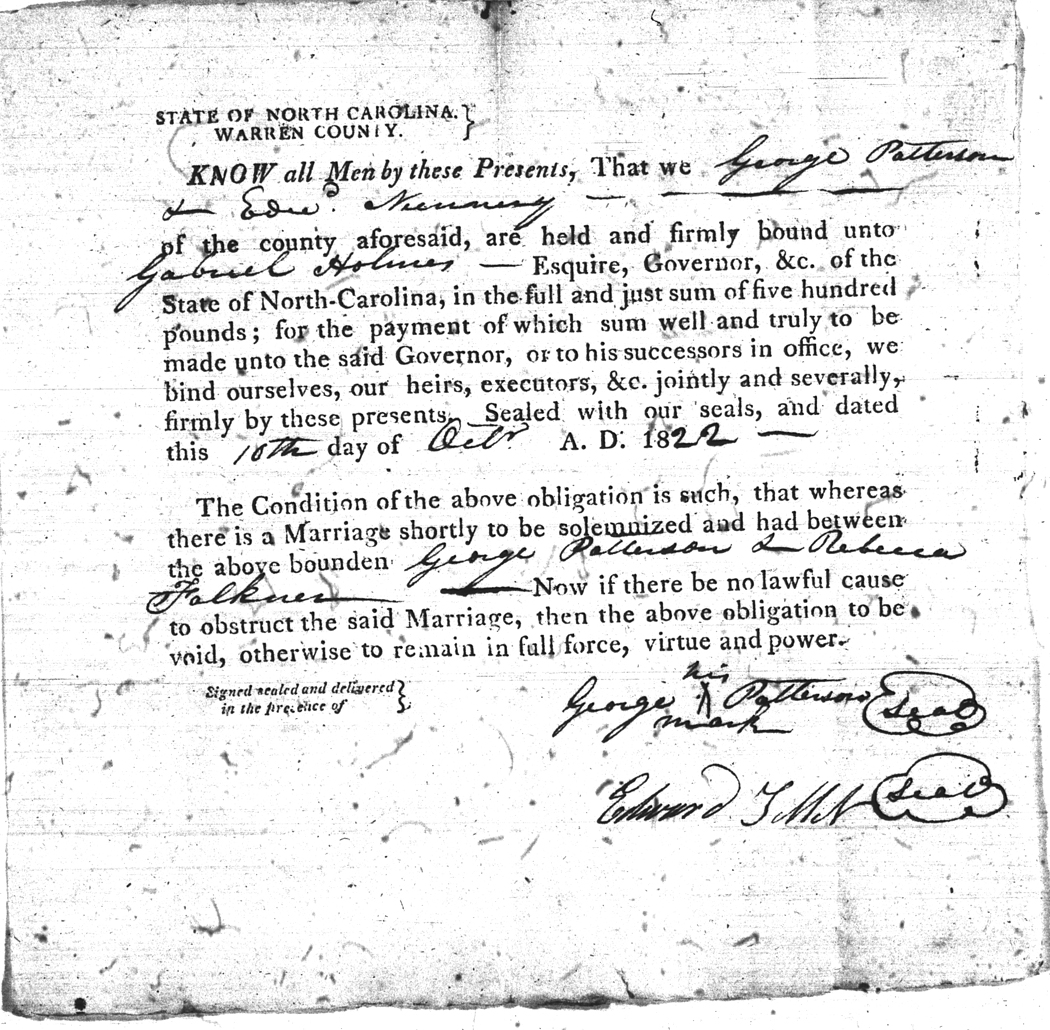 STATE OF NORTH CAROLINA. }
WARREN COUNTY.
KNOW all Men by these Presents, That we George Patterson
& Edwd. Nunnery
of the county aforesaid, are held and firmly bound unto
Gabriel Holmes — Esquire, Governor, &c. of the
State of North-Carolina, in the full and just sum of five hundred
pounds; for the payment of which sum well and truly to be
made unto the said Governor, or to his successors in office, we
bind ourselves, our heirs, executors, &c. jointly and severally,
firmly by these presents. Sealed with our seals, and dated
this 10th day of Octr A. D. 1822 —
The Condition of the above obligation is such, that whereas
there is a Marriage shortly to be solemnized and had between
the above bounden George Patterson & Rebecca
Falkner — Now if there be no lawful cause
to obstruct the said Marriage, then the above obligation to be
void, otherwise to remain in full force, virtue and power.
Signed sealed and delivered }
in the presence of
his
George X Patterson Seal
mark
Edward Seal